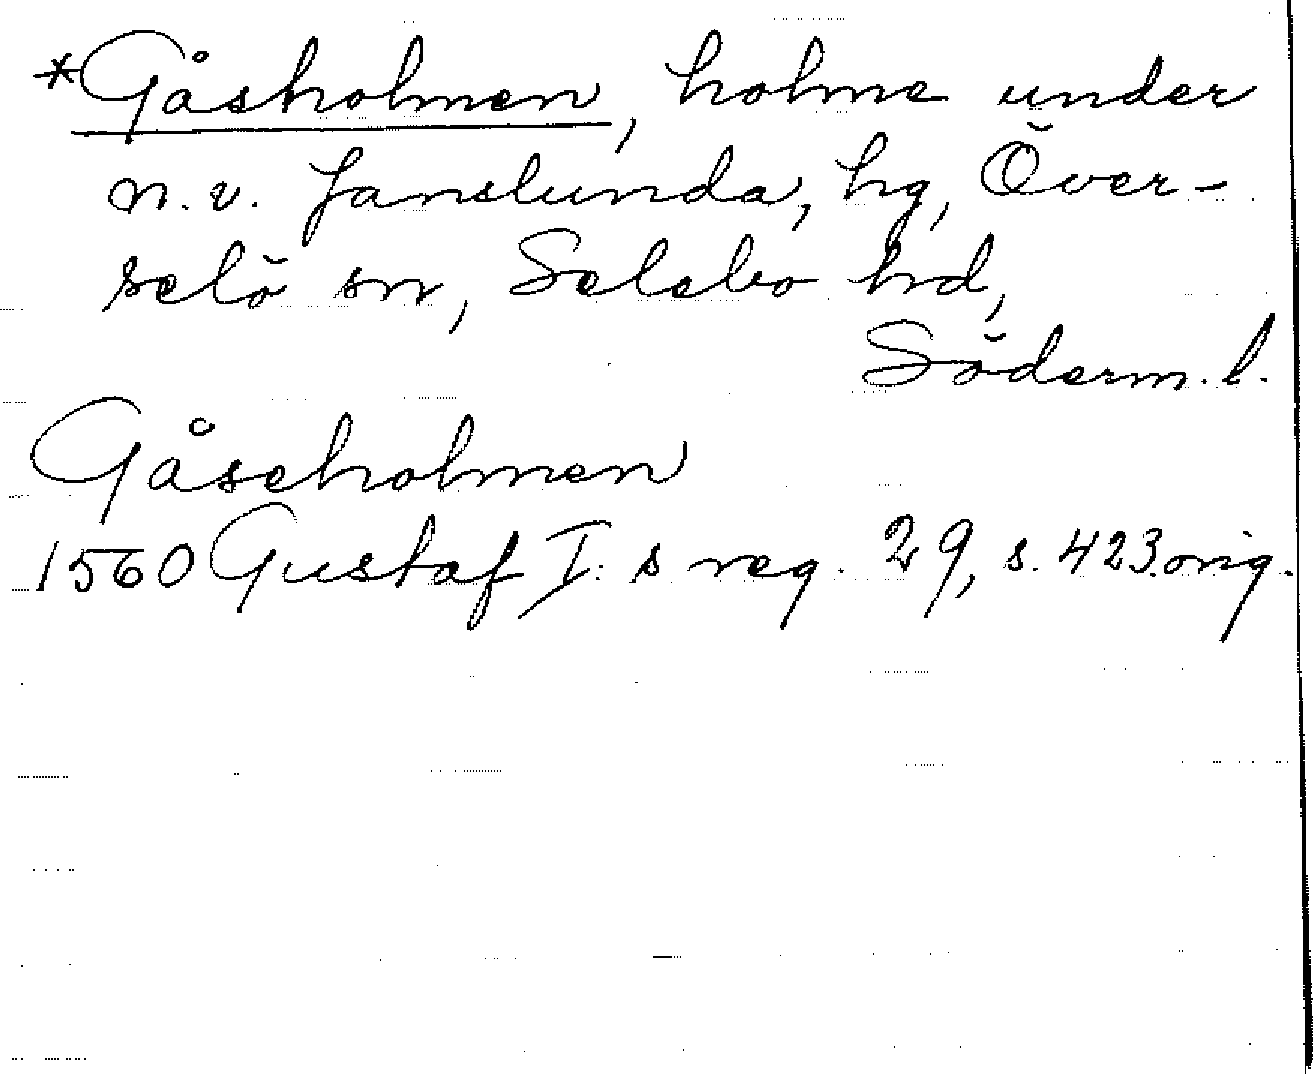 *Gåsholmen, holme under
n.v. Janslunda, hg, Över-
selö sn, Selebo hd,
Söderm. l.
Gåseholmen
1560 Gustaf I:s reg. 29, s. 423 orig.